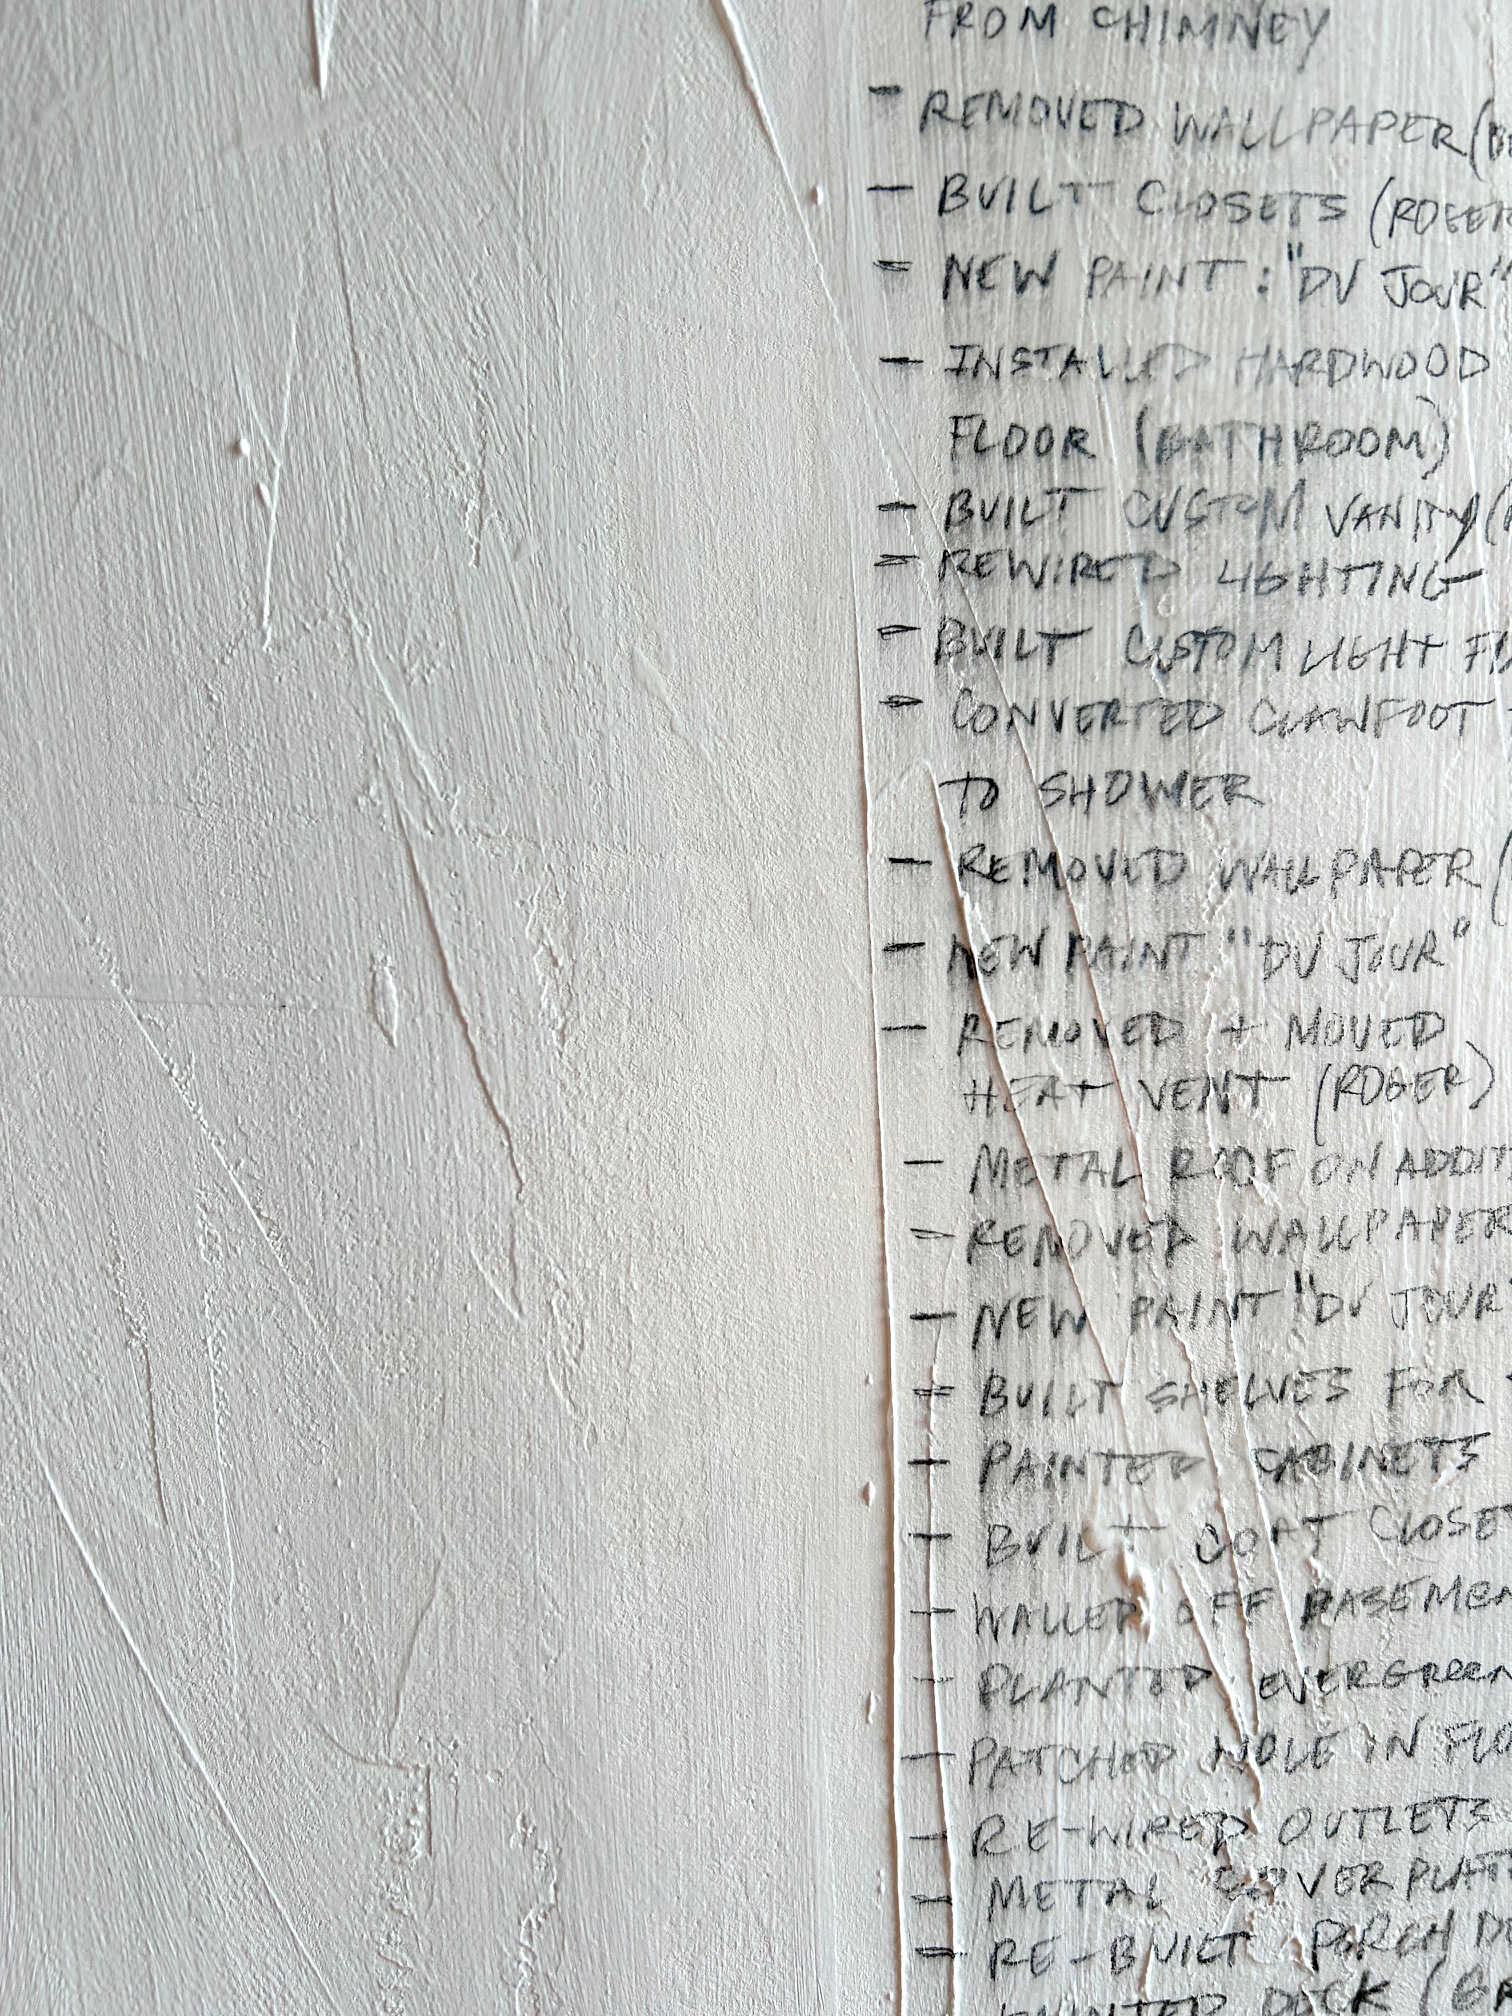 FROM CHIMNEY
- REMOVED WALLPAPER (
- BUILT CLOSETS (ROGER
- NEW PAINT: "DU JOUR"
- INSTALLED HARDWOOD
FLOOR (BATHROOM)
- BUILT CUSTOM VANITY (
- REWIRED LIGHTING
- BUILT CUSTOM LIGHT
- CONVERTED CLAWFOOT
TO SHOWER
- REMOVED WALLPAPER (
- NEW PAINT "DU JOUR"
- REMOVED + MOVED
HEAT VENT (ROGER)
- METAL ROOF ON ADDIT
- REMOVED WALLPAPER
- NEW PAINT "DU JOUR"
- BUILT SHELVES FOR
- PAINTED CABINETS
- BUILT COAT CLOSE
- WALLED OFF BASEMEN
- PLANTED EVERGREEN
- PATCHED HOLE IN FLO
- RE-WIRED OUTLETS
- METAL COVER PLAT
- RE-BUILT PORCH
DECK (